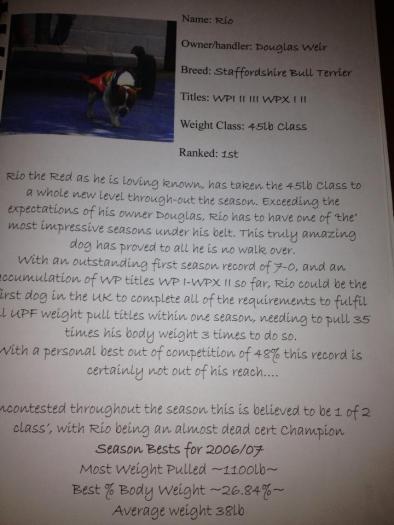 Name: Rio
Owner/handler: Douglas Weir
Breed: Staffordshire Bull Terrier
Titles: WPI II III WPX I II
Weight Class: 45lb Class
Ranked: 1st
Rio the Red as he is loving known, has taken the 45lb Class to
a whole new level through-out the season. Exceeding the
expectations of his owner Douglas, Rio has to have one of 'the'
most impressive seasons under his belt. This truly amazing
dog has proved to all he is no walk over.
With an outstanding first season record of 7-0, and an
accumulation of WP titles WP I-WPX II so far, Rio could be the
first dog in the UK to complete all of the requirements to fulfil
UPF weight pull titles within one season, needing to pull 35
times his body weight 3 times to do so.
With a personal best out of competition of 48% this record is
certainly not out of his reach....
ncontested throughout the season this is believed to be 1 of 2
class', with Rio being an almost dead cert Champion
Season Bests for 2006/07
Most Weight Pulled ~1100lb~
Best % Body Weight ~26.84%~
Average weight 38lb